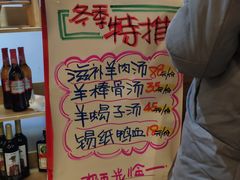 冬季特推
滋补羊肉汤 88元/份
羊棒骨汤 35元/份
羊蝎子汤 45元/份
锡纸鸭血 18元/份